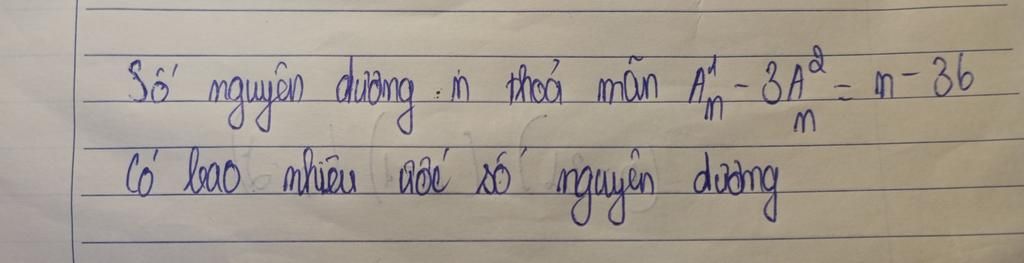 Số nguyên dương n thoả mãn A¹ₙ - 3A²ₙ = n - 36
Có bao nhiêu ước số nguyên dương